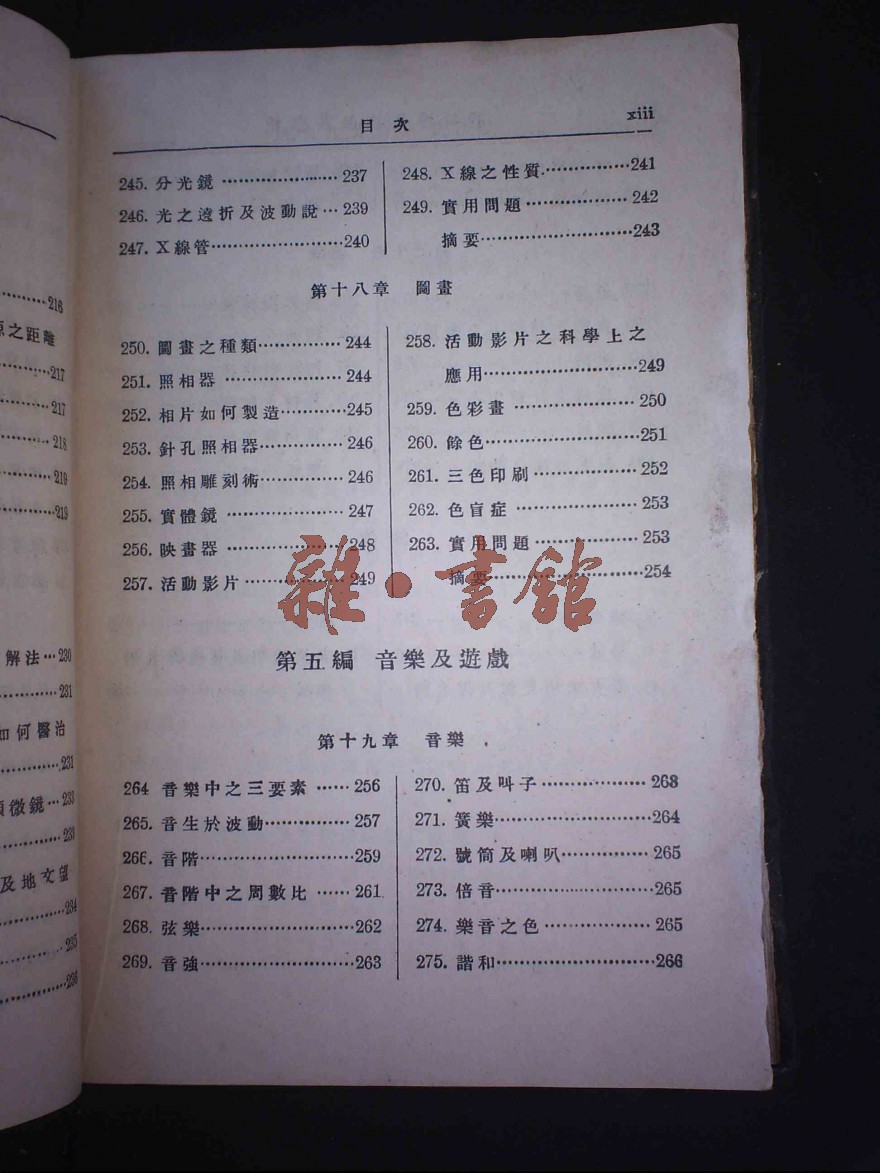 目次 xiii
245. 分光鏡 ………………… 237
246. 光之遠折及波動說 … 239
247. X線管 ………………… 240
248. X線之性質 …………… 241
249. 實用問題 ……………… 242
摘要 ……………………… 243
第十八章 圖畫
250. 圖畫之種類 …………… 244
251. 照相器 ………………… 244
252. 相片如何製造 ………… 245
253. 針孔照相器 …………… 246
254. 照相雕刻術 …………… 246
255. 實體鏡 ………………… 247
256. 映畫器 ………………… 248
257. 活動影片 ……………… 249
258. 活動影片之科學上之
應用 ……………………… 249
259. 色彩畫 ………………… 250
260. 餘色 …………………… 251
261. 三色印刷 ……………… 252
262. 色盲症 ………………… 253
263. 實用問題 ……………… 253
摘要 ……………………… 254
雜·書館
第五編 音樂及遊戲
第十九章 音樂
264 音樂中之三要素 …… 256
265. 音生於波動 …………… 257
266. 音階 …………………… 259
267. 音階中之周數比 …… 261
268. 弦樂 …………………… 262
269. 音強 …………………… 263
270. 笛及叫子 ……………… 263
271. 簧樂 …………………… 264
272. 號筒及喇叭 …………… 265
273. 倍音 …………………… 265
274. 樂音之色 ……………… 265
275. 諧和 …………………… 266
216
之距離
217
217
218
219
219
解法 … 230
231
如何醫治
231
顯微鏡 … 233
233
及地文望
234
235
236